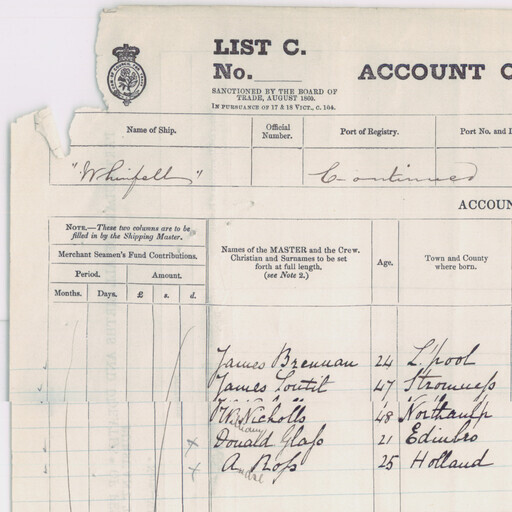 LIST C.
No.
ACCOUNT
SANCTIONED BY THE BOARD OF
TRADE, AUGUST 1860.
IN PURSUANCE OF 17 & 18 VICT., C. 104.
Name of Ship.
Official
Number.
Port of Registry.
Port No. and
"Whinfell"
Continued
ACCOUN
NOTE.—These two columns are to be
filled in by the Shipping Master.
Merchant Seamen's Fund Contributions.
Period.
Amount.
Months.
Days.
£
s.
d.
Names of the MASTER and the Crew.
Christian and Surnames to be set
forth at full length.
(see Note 2.)
Age.
Town and County
where born.
James Brennan 24 L'pool
James Loutit 47 Stromness
Wm Nicholls 48 Northamp
William
Donald Glass 21 Edinbro
A Ross 25 Holland